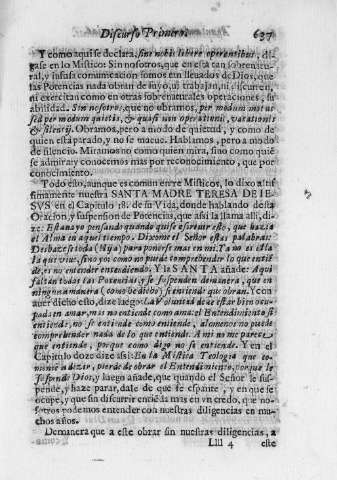 Discurso Primero. 637
Y como aqui se declara, sine nobis libere operantibus, di-
gase en lo Mistico: Sin nosotros, que en esta tan sobrenatu-
ral, y infusa comunicacion somos tan lleuados de Dios, que
las Potencias nada obran de suyo, ni trabajan, ni discurren,
ni exercitan como en otras sobrenaturales operaciones, su
abilidad. Sin nosotros, que no obramos, per modum motus
sed per modum quietis, & quasi non operationis, vacationis
& silentij. Obramos, pero a modo de quietud, y como de
quien està parado, y no se mueue. Hablamos, pero a modo
de silencio. Miramos no como quien mira, sino como quiē
se admira, y conocemos mas por reconocimiento, que por
conocimiento.
Todo esto, aunque es comun entre Misticos, lo dixo altis-
simamente nuestra SANTA MADRE TERESA DE IE-
SVS en el Capitulo 18. de su Vida, donde hablando desta
Oracion, y suspension de Potencias, que assi la llama alli, di-
ze: Estauo pensando quando quise escriuir esto, que hazia
el Alma en aquel tiempo. Dixome el Señor estas palabras:
Deshazese toda (Hija) para ponerse mas en mi. Ya no es ella
la que viue, sino yo: como no puede comprehender lo que entiē-
de, es no entender entendiendo. Y la SANTA añade: Aqui
faltan todas las Potencias, y se suspenden de manera, que en
ninguna manera (como he dicho) se entiende que obran. Y en
auer dicho esto, dize luego: La Voluntad deue estar bien ocu-
pada en amar, mas no entiende como ama: el Entendimiento si
entiende, no se entiende como entiende, alomenos no puede
comprehender nada de lo que entiende. A mi no me parece,
que entiende, porque como digo no se entiende. Y en el
Capitulo doze dize assi: En la Mistica Teologia que co-
mencè a dezir, pierde de obrar el Entendimiento, porque le
suspende Dios, y luego añade, que quando el Señor le sus-
pende, y haze parar, dale de que se espante, y en que se
ocupe, y que sin discurrir entiēda mas en vn credo, que no-
sotros podemos entender con nuestras diligencias en mu-
chos años.
Demanera que a este obrar sin nuestras diligencias, a
Llll 4 este